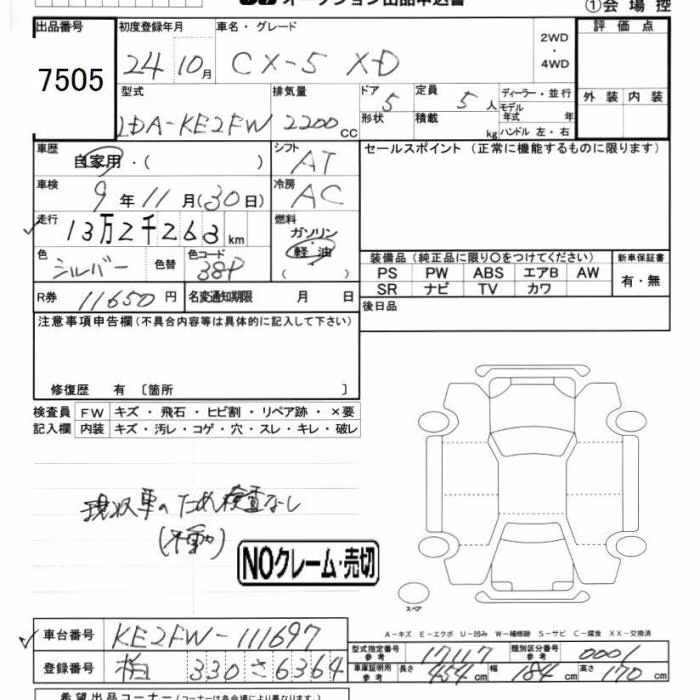 オークション出品申込書
①会場控
出品番号 初度登録年月 車名・グレード 2WD・4WD 評価点
7505 24 10月 CX-5 XD
型式 排気量 ドア 5 定員 5人 ディーラー・並行 外装 内装
LDA-KE2FW 2200cc 形状 積載 kg モデル年式 年
ハンドル 左・右
車歴 自家用・( ) シフト AT セールスポイント(正常に機能するものに限ります)
車検 9年11月(30日) 冷房 AC
走行 13万2千263km 燃料 ガソリン
軽油
( )
色 シルバー 色替 色コード 38P 装備品(純正品に限り〇をつけてください) 新車保証書
PS PW ABS エアB AW 有・無
SR ナビ TV カワ
R券 11650円 名変通知期限 月 日 後日品
注意事項申告欄(不具合内容等は具体的に記入して下さい)
修復歴 有 〔箇所 〕
検査員 FW キズ・飛石・ヒビ割・リペア跡・×要
記入欄 内装 キズ・汚レ・コゲ・穴・スレ・キレ・破レ
現収車のため検査なし
(不動)
NOクレーム・売切
スペア
A-キズ E-エクボ U-凹み W-補修跡 S-サビ C-腐食 XX-交換済
車台番号 KE2FW-111697
型式指定番号 参考 17117 類別区分番号 参考 0001
登録番号 柏 330 さ 6364
車庫証明用 参考 長さ 454cm 幅 184cm 高さ 170cm
希望出品コーナー(コーナーは各会場により異なります。)